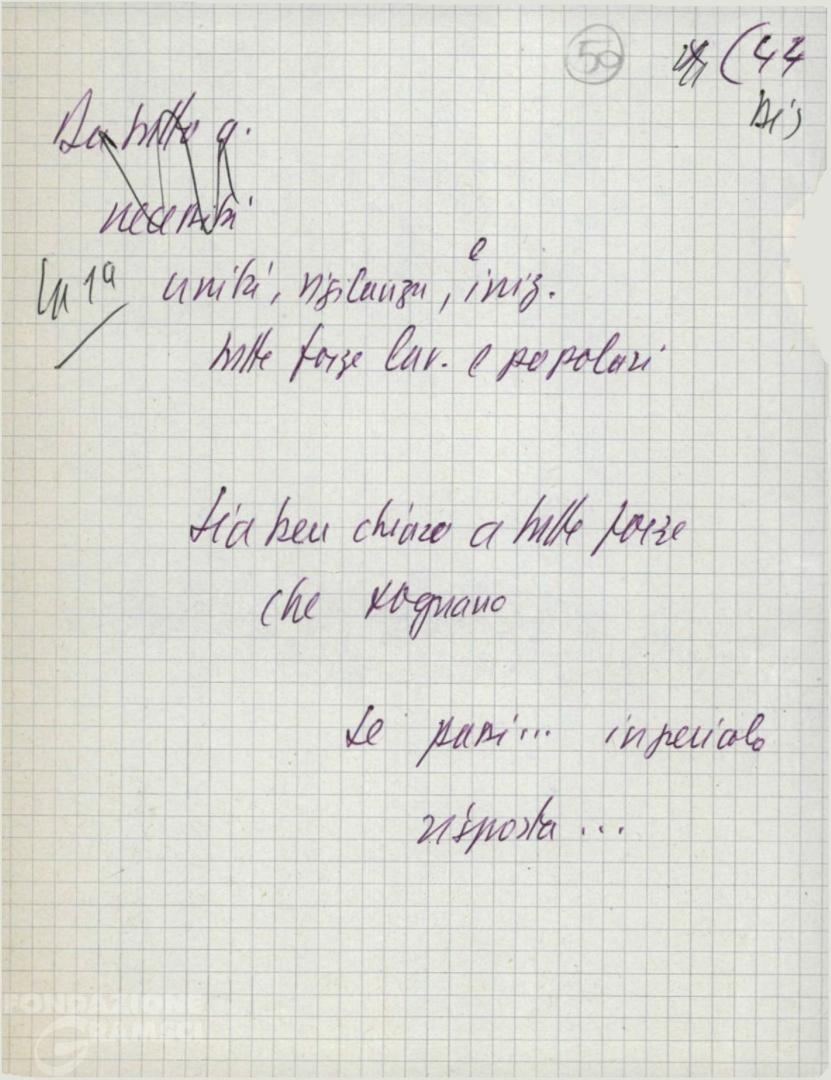 50 (44
bis
Da tutto q.
necessità
In 1ª unità, vigilanza, e iniz.
tutte forze lav. e popolari
Sia ben chiaro a tutte forze
che sognano
Se passi... in pericolo
risposta ...
FONDAZIONE
GRAMSCI